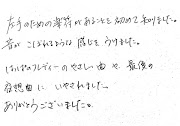 左手のための楽符があることを初めて知りました。
音がこぼれるような感じをうけました。
はんぱのフレディーのやさしい曲や最後の
夜想曲にいやされました。
ありがとうございました。